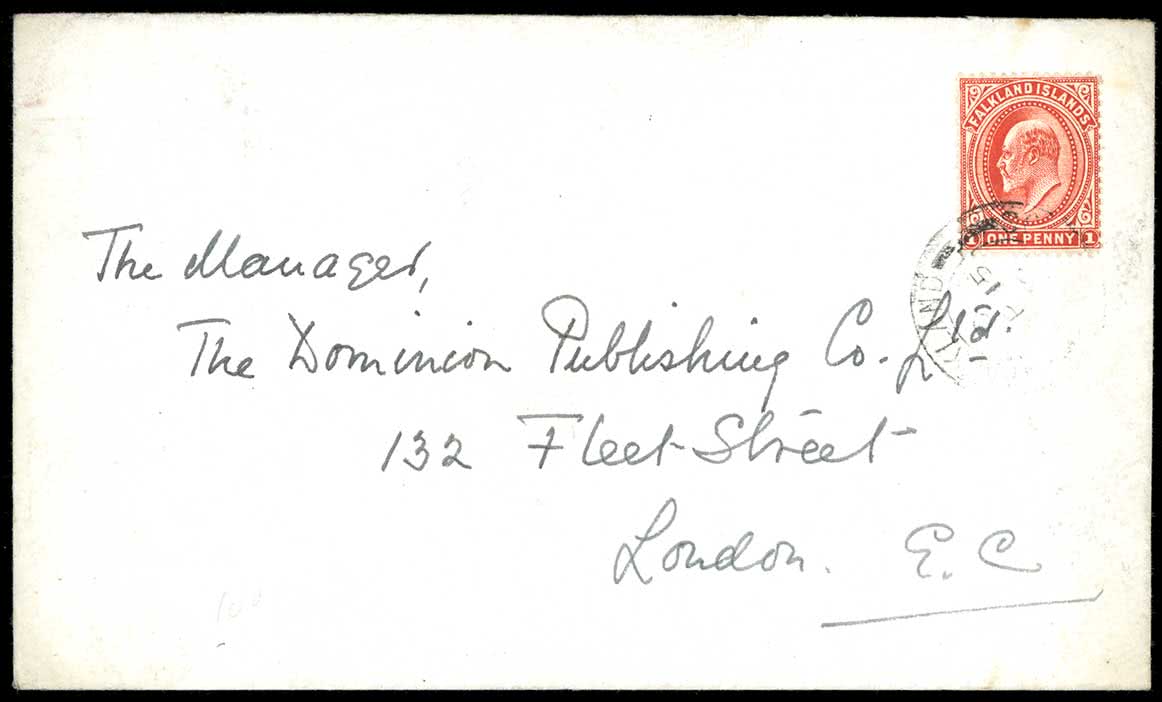 FALKLAND ISLANDS
1 ONE PENNY 1
15
The Manager,
The Dominion Publishing Co. Ltd.
132 Fleet Street
London. E.C